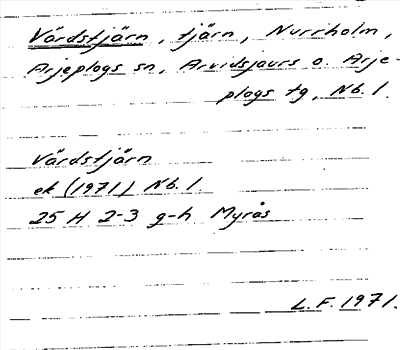 Värdstjärn, tjärn, Nurrholm,
Arjeplogs sn, Arvidsjaurs o. Arje-
plogs tg, Nb. l.
Värdstjärn
ek (1971) Nb. l.
25 H 2-3 g-h Myrås
L.F. 1971.